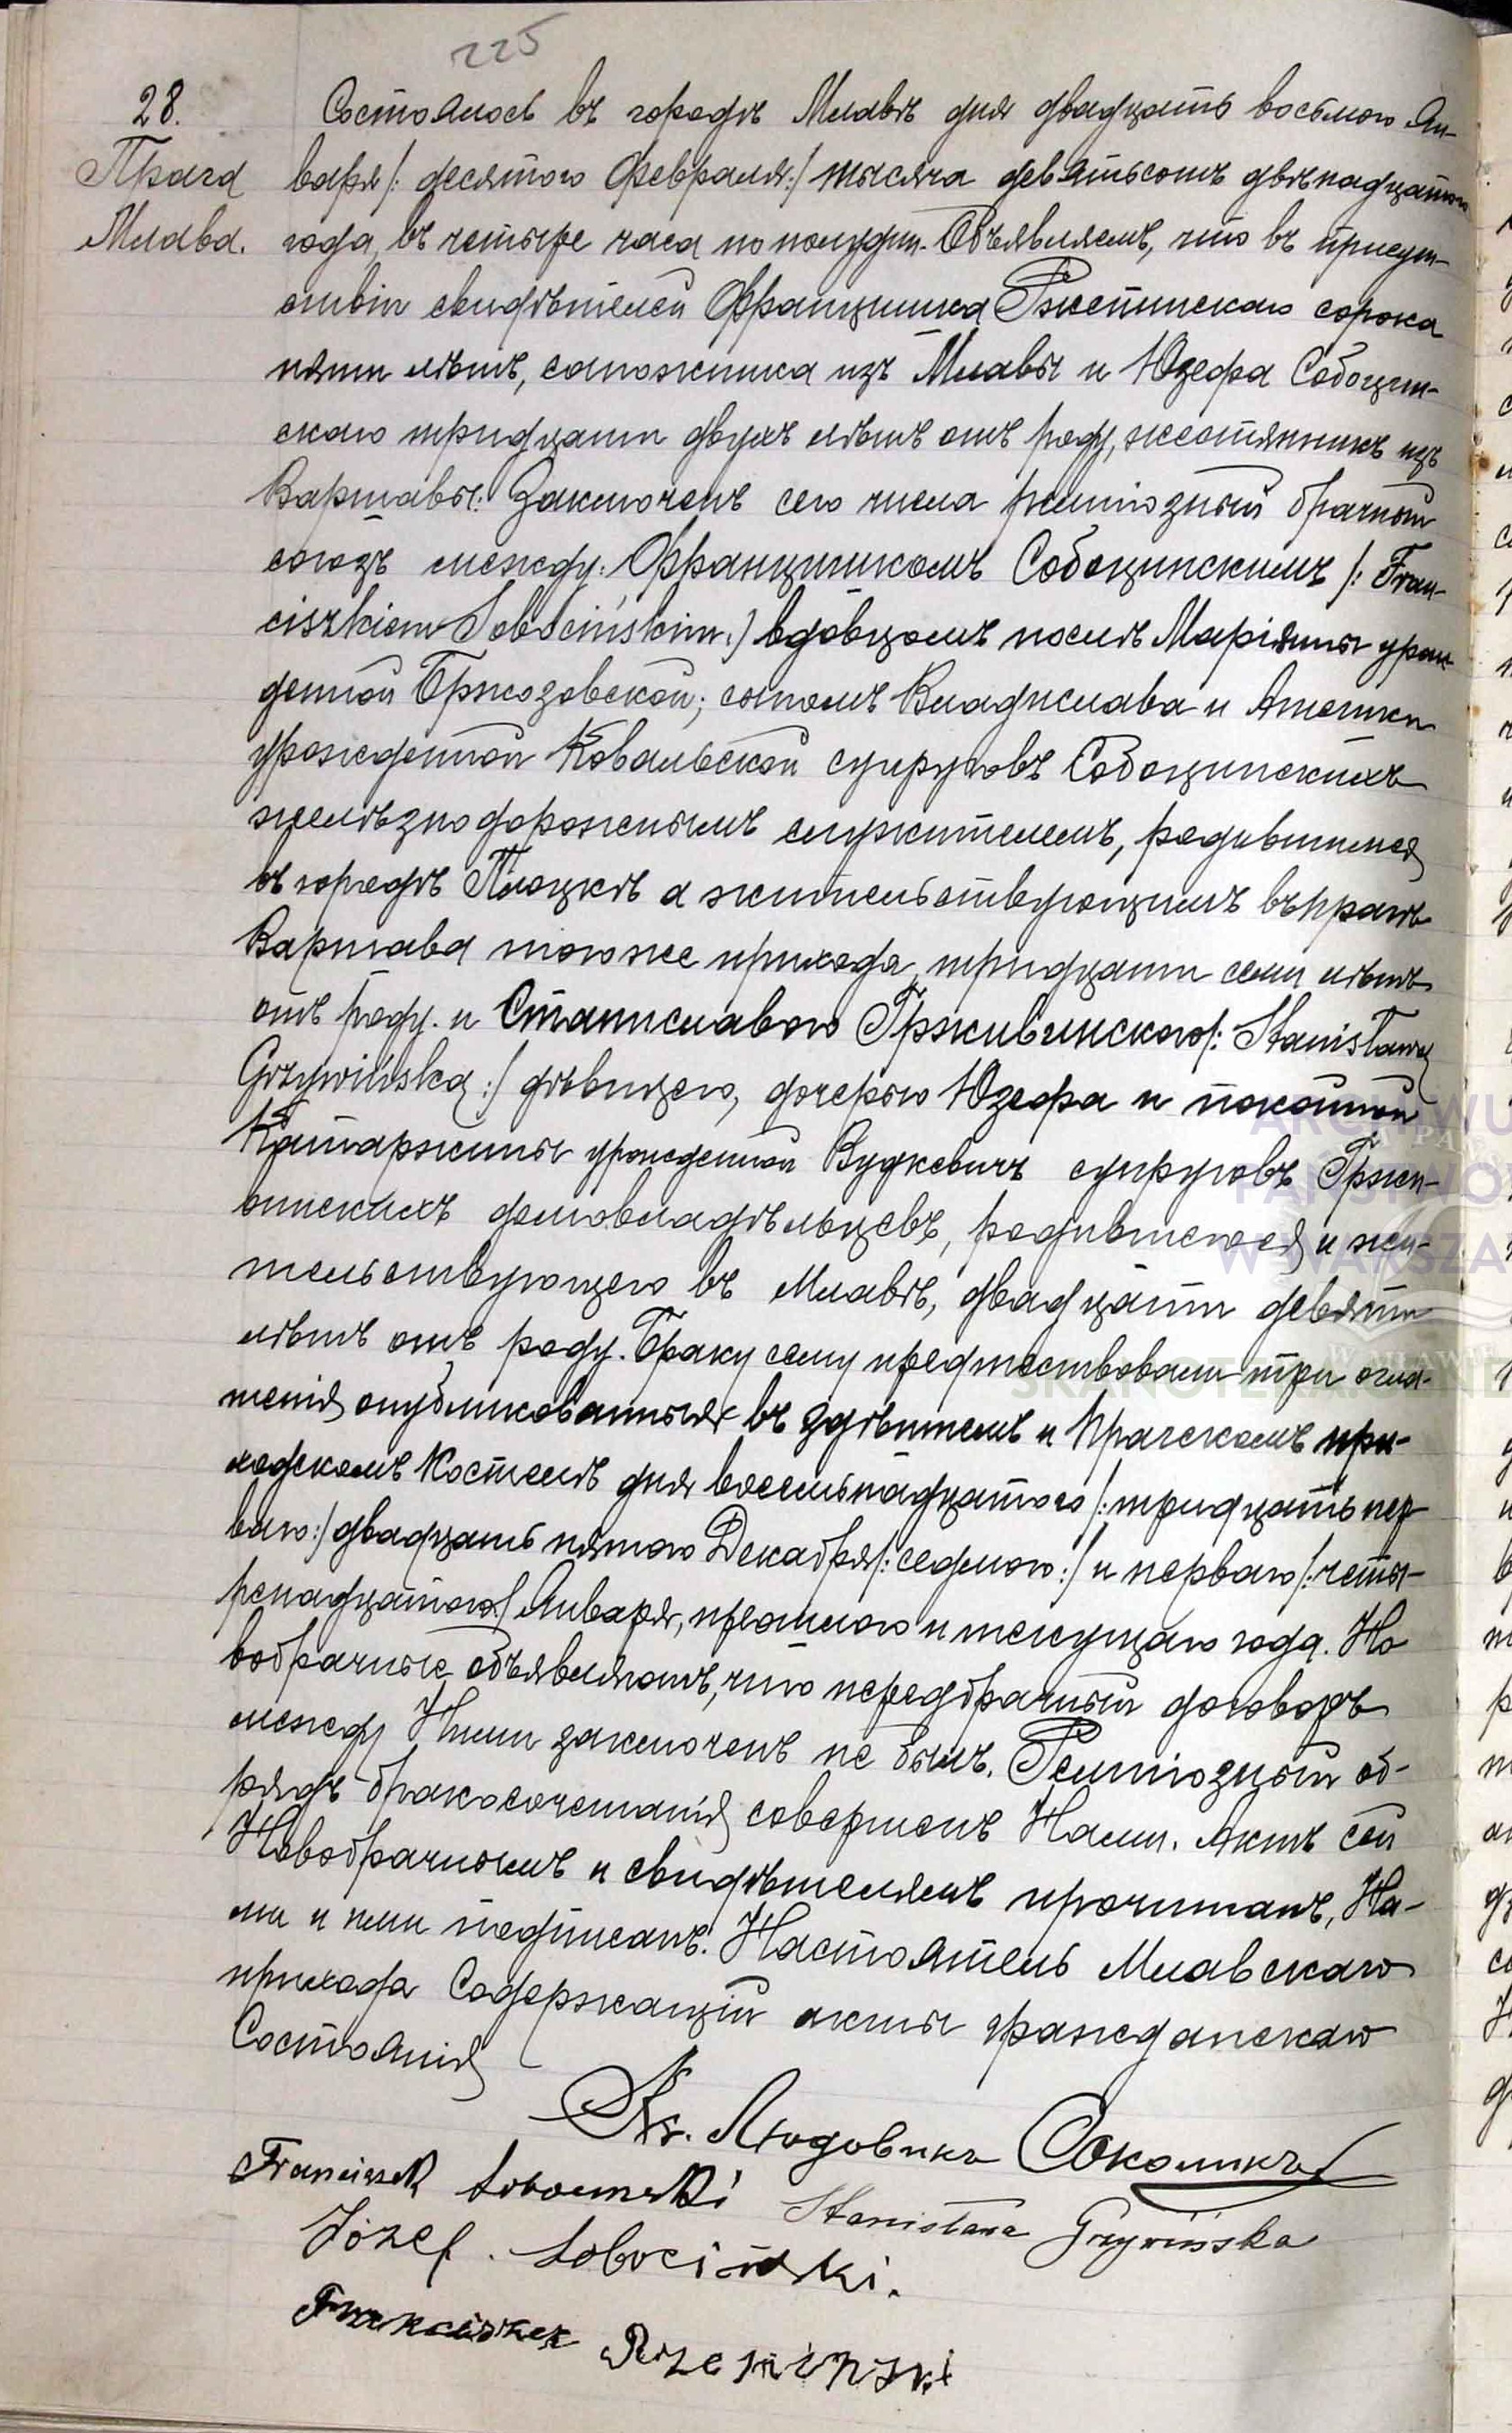 225
28.
Прага
Млава.
Состоялось въ городѣ Млавѣ дня двадцать восьмого Ян-
варя /: десятого Февраля :/ тысяча девятьсотъ двѣнадцатого
года, въ четыре часа по полудни. Объявляемъ, что въ присут-
ствіи свидѣтелей Францишка Ржепинскаго сорока
пяти лѣтъ, сапожника изъ Млавы и Юзефа Собоцин-
скаго тридцати двухъ лѣтъ отъ роду, жестянникъ изъ
Варшавы: Заключенъ сего числа религіозный брачный
союзъ между: Францишкомъ Собоцинскимъ /: Fran-
ciszkiem Sobocińskim :/ вдовцомъ послѣ Маріанны урож-
денной Бржозовской; сыномъ Владислава и Анельки
урожденной Ковальской супруговъ Собоцинскихъ
желѣзнодорожнымъ служителемъ, родившимся
въ городѣ Плоцкѣ а жительствующимъ въ Прагѣ
Варшава тогоже прихода, тридцати семи лѣтъ
отъ роду. и Станиславою Грживинскою /: Stanisławą
Grzywińską :/ дѣвицею, дочерью Юзефа и покойной
Катаржины урожденной Вудкевичъ супруговъ Гржи-
винскихъ домовладѣльцевъ, родившеюся и жи-
тельствующею въ Млавѣ, двадцати девяти
лѣтъ отъ роду. Браку сему предшествовали три огла-
шенія опубликованныя въ здѣшнемъ и Прагскомъ при-
ходскомъ Костелѣ дня восемьнадцатого /: тридцать пер-
ваго :/ двадцать пятого Декабря /: седьмого :/ и перваго /: четы-
ренадцатого :/ Января, прошлого и текущаго года. Но
вобрачные объявляютъ, что передбрачный договоръ
между Ними заключенъ не былъ. Религіозный об-
рядъ бракосочетанія совершенъ Нами. Актъ сей
Новобрачнымъ и свидѣтелямъ прочитанъ, На-
ми и ними подписанъ. Настоятель Млавскаго
прихода Содержащій акты гражданскаго
Состоянія
Кс. Людовикъ
Franciszek Sobocinski Stanisława Grzywińska
Józef. Sobociński.
Franciszek Rzepinski